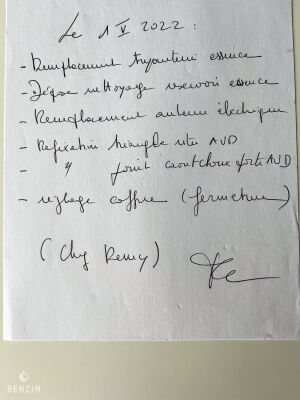 Le 1 V 2022 :
- Remplacement tuyauterie essence
- Dépose nettoyage reservoir essence
- Remplacement antenne électrique
- Refixation triangle vitre AVD
- " joint caoutchouc porte AVD
- réglage coffre (fermeture)
(Chez Remy)
BENZIN